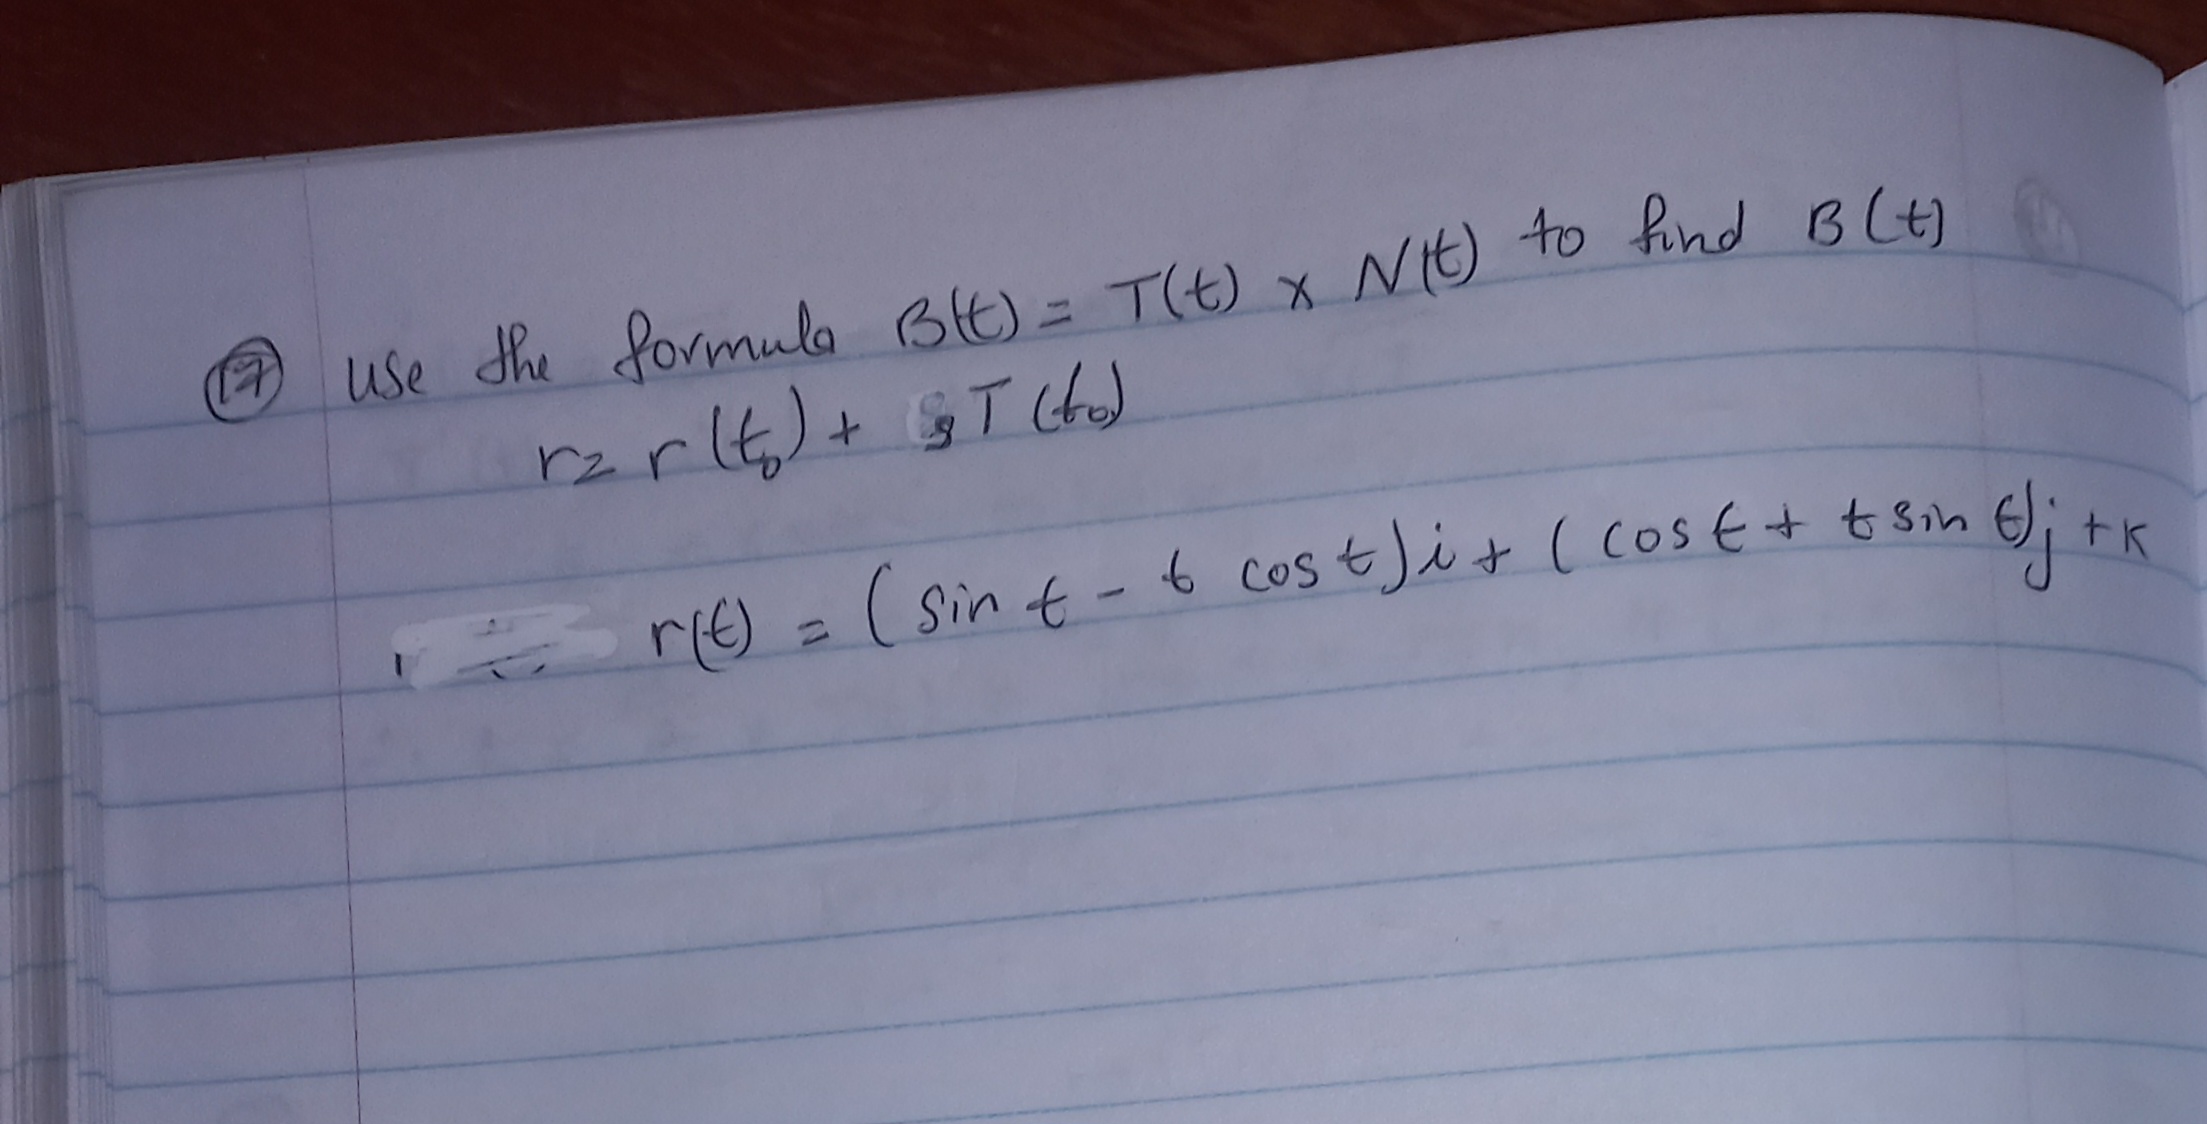 (17) use the formula B(t) = T(t) x N(t) to find B(t)
r= r(t₀) + sT(t₀)
r(t) = (sin t - t cos t)i + (cos t + t sin t)j + K